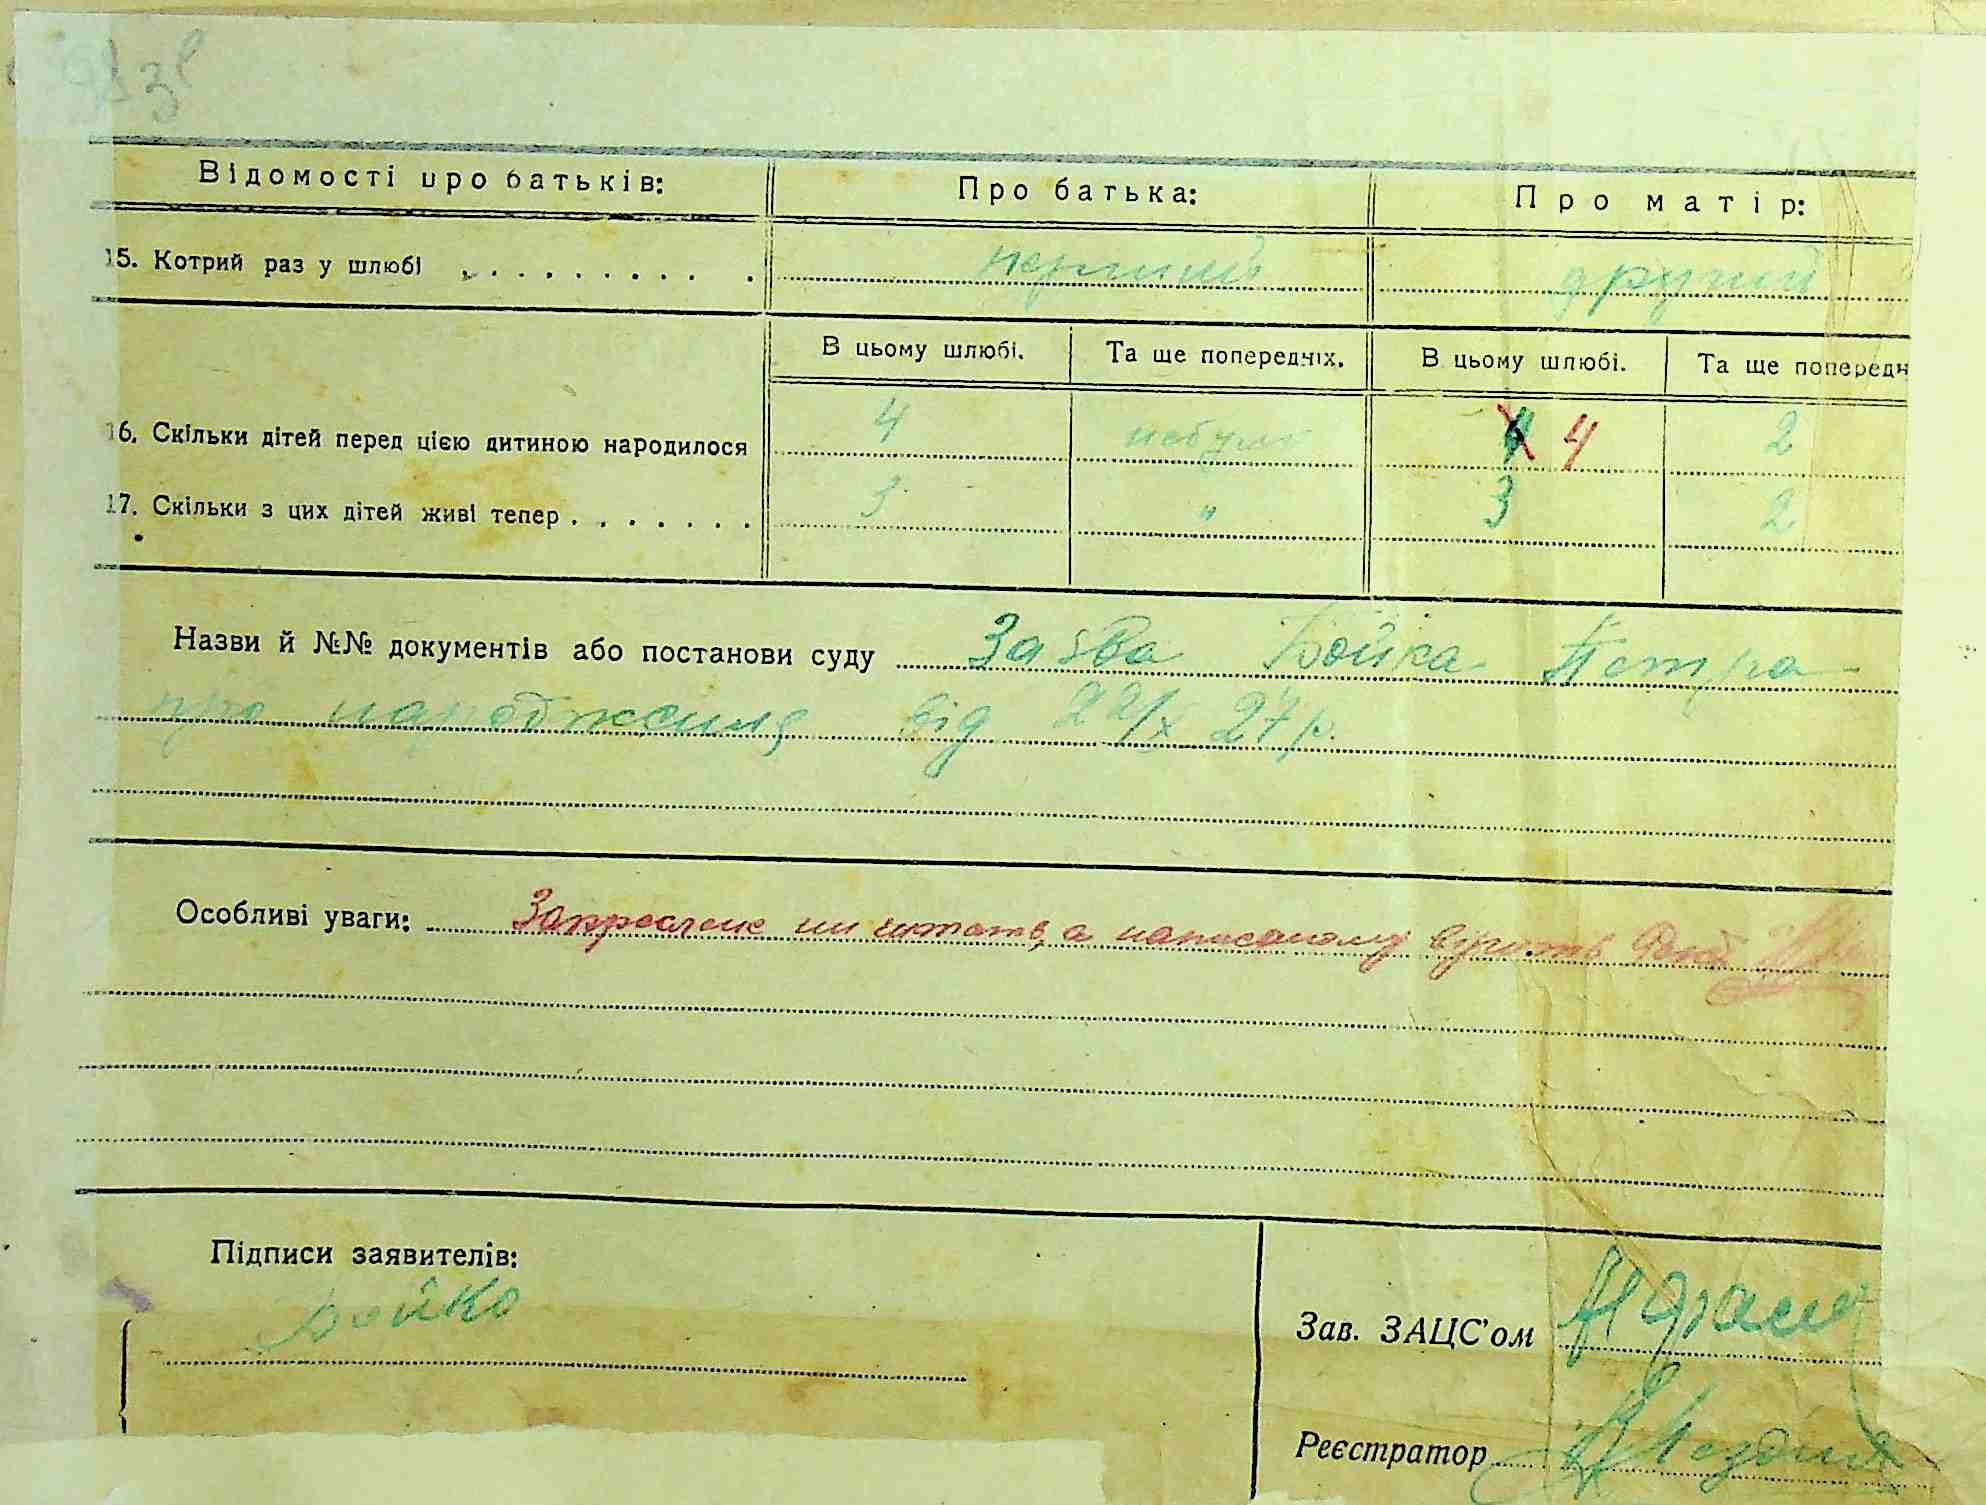 Відомості про батьків: Про батька: Про матір:
15. Котрий раз у шлюбі . . . . . . . . . . перший другий
В цьому шлюбі. Та ще попередніх. В цьому шлюбі. Та ще попередн
16. Скільки дітей перед цією дитиною народилося 4 небуло 4 2
17. Скільки з цих дітей живі тепер . . . . . . . 3 " 3 2
Назви й №№ документів або постанови суду Заява Бойка Петра
про народження від 22/X 27р.
Особливі уваги: Закреслене ни читать, а написаному вірить
Підписи заявителів:
Бойко
Зав. ЗАЦС'ом
Реєстратор